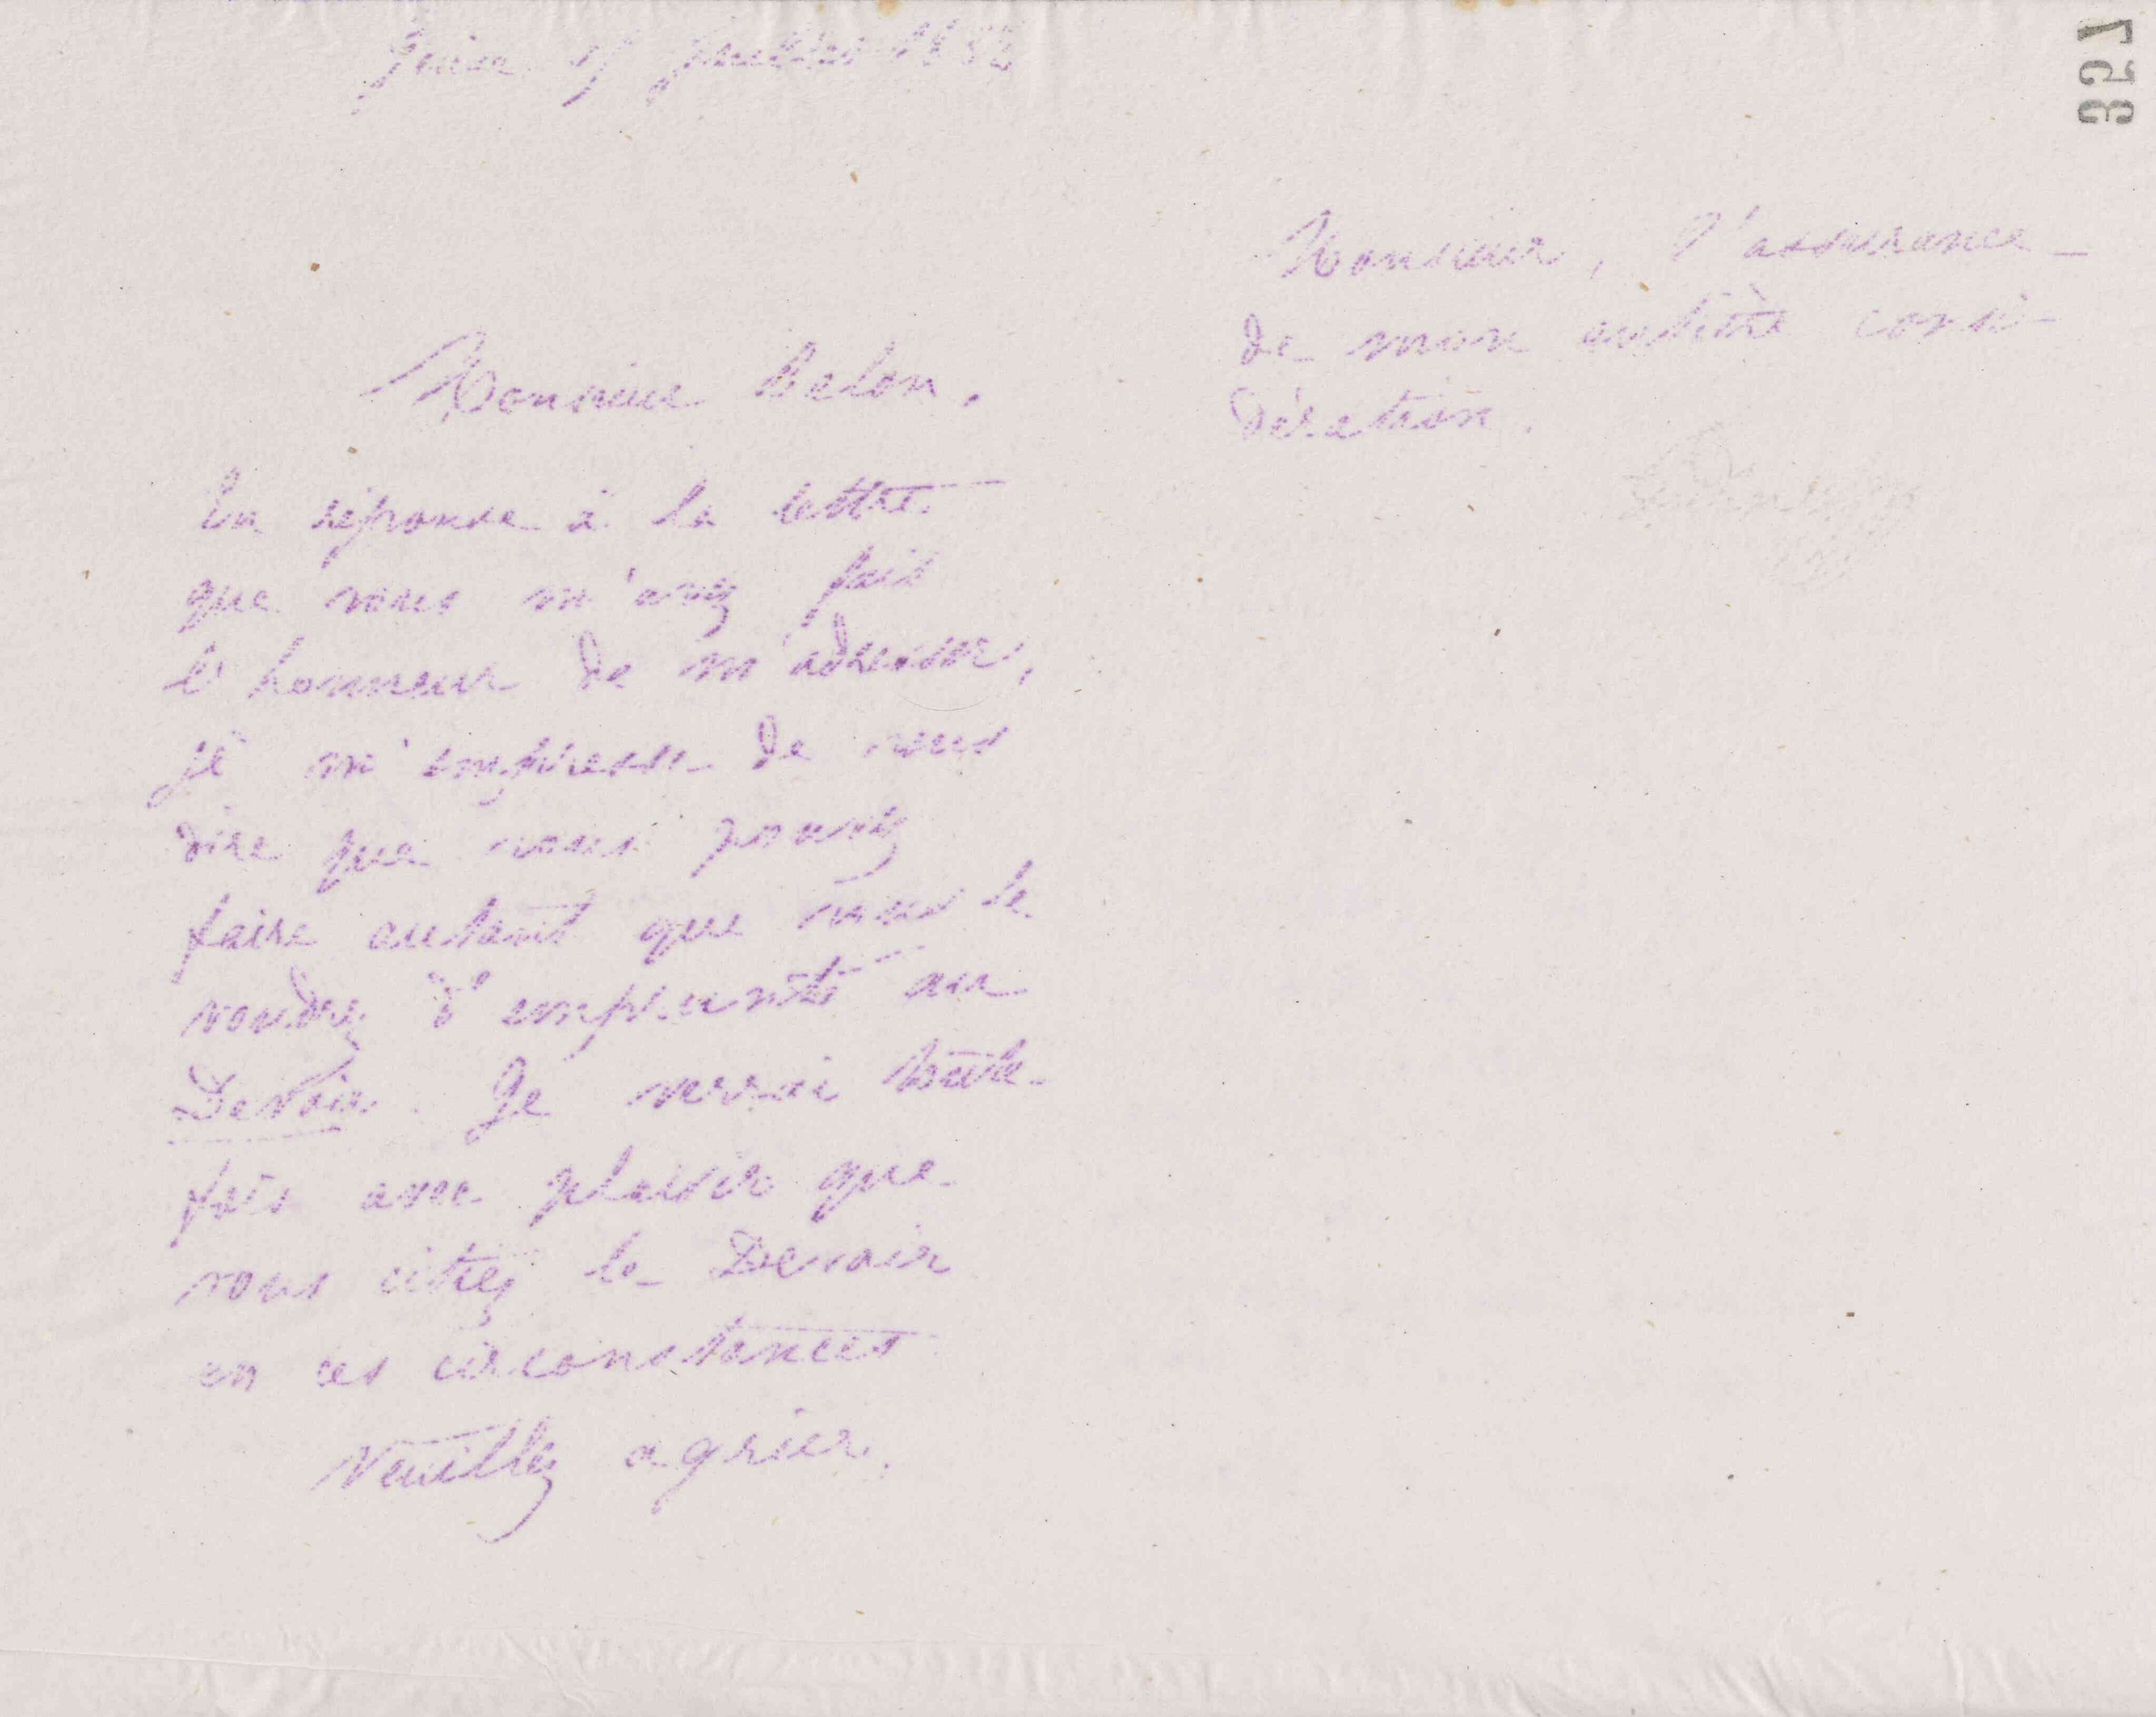 Guise 17 Juillet 1882
Monsieur Balon.
En réponse à la lettre
que vous m'avez fait
l'honneur de m'adresser,
je m'empresse de vous
dire que vous pouvez
faire autant que vous le
voudrez d'emprunts au
Devoir. Je verrai toute-
fois avec plaisir que
vous citiez le Devoir
en ces circonstances
Veuillez agréer,
Monsieur, l'assurance
de mon entière consi-
dération.
3257